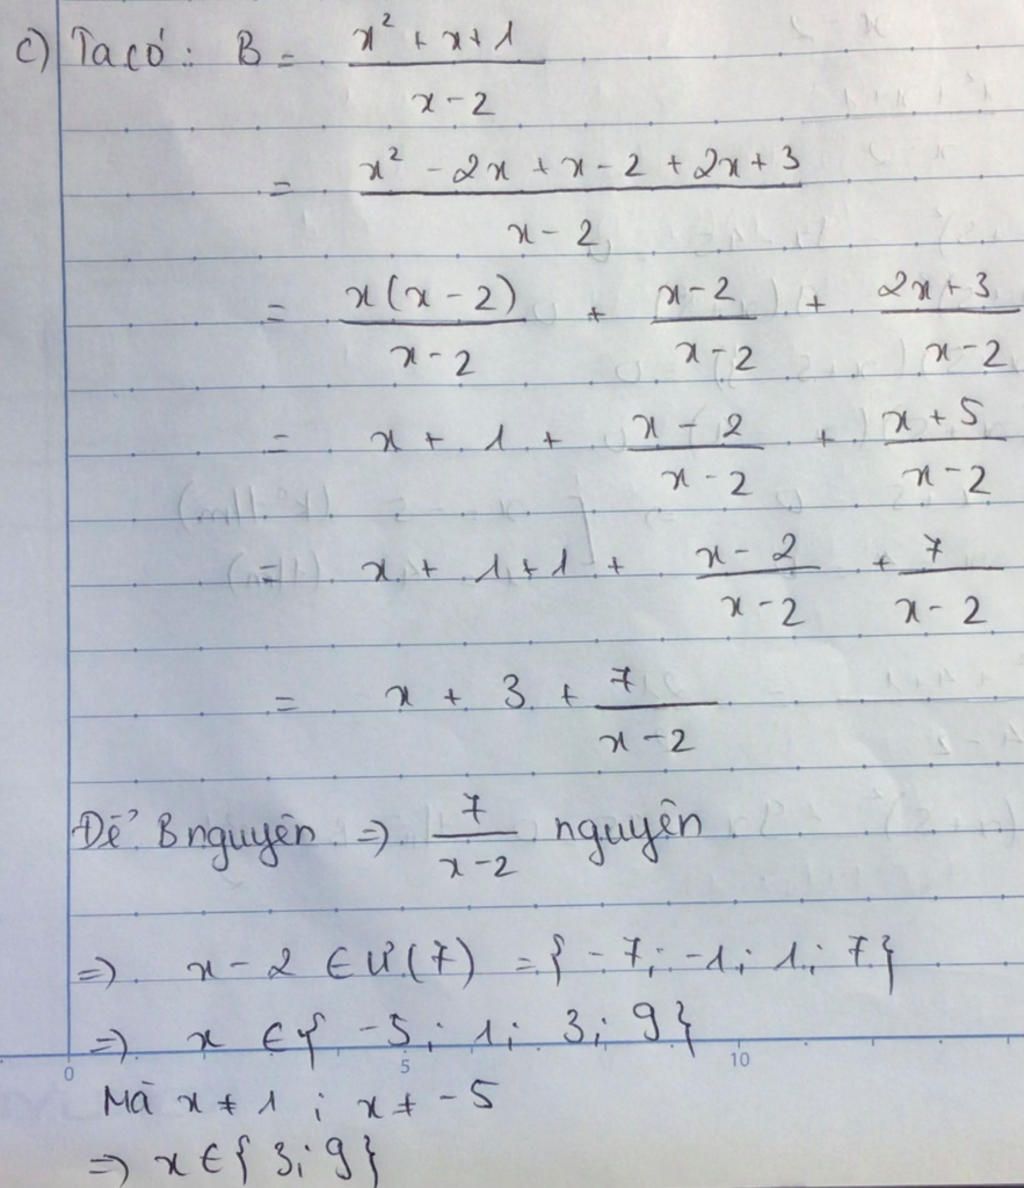 c) Ta có: B = \frac{x² + x + 1}{x - 2}
= \frac{x² - 2x + x - 2 + 2x + 3}{x - 2}
= \frac{x(x - 2)}{x - 2} + \frac{x - 2}{x - 2} + \frac{2x + 3}{x - 2}
= x + 1 + \frac{x - 2}{x - 2} + \frac{x + 5}{x - 2}
= x + 1 + 1 + \frac{x - 2}{x - 2} + \frac{7}{x - 2}
= x + 3 + \frac{7}{x - 2}
Để B nguyên => \frac{7}{x - 2} nguyên
=> x - 2 ∈ Ư(7) = { -7; -1; 1; 7}
=> x ∈ { -5; 1; 3; 9}
0 5 10
Mà x ≠ 1 ; x ≠ -5
=> x ∈ { 3; 9}